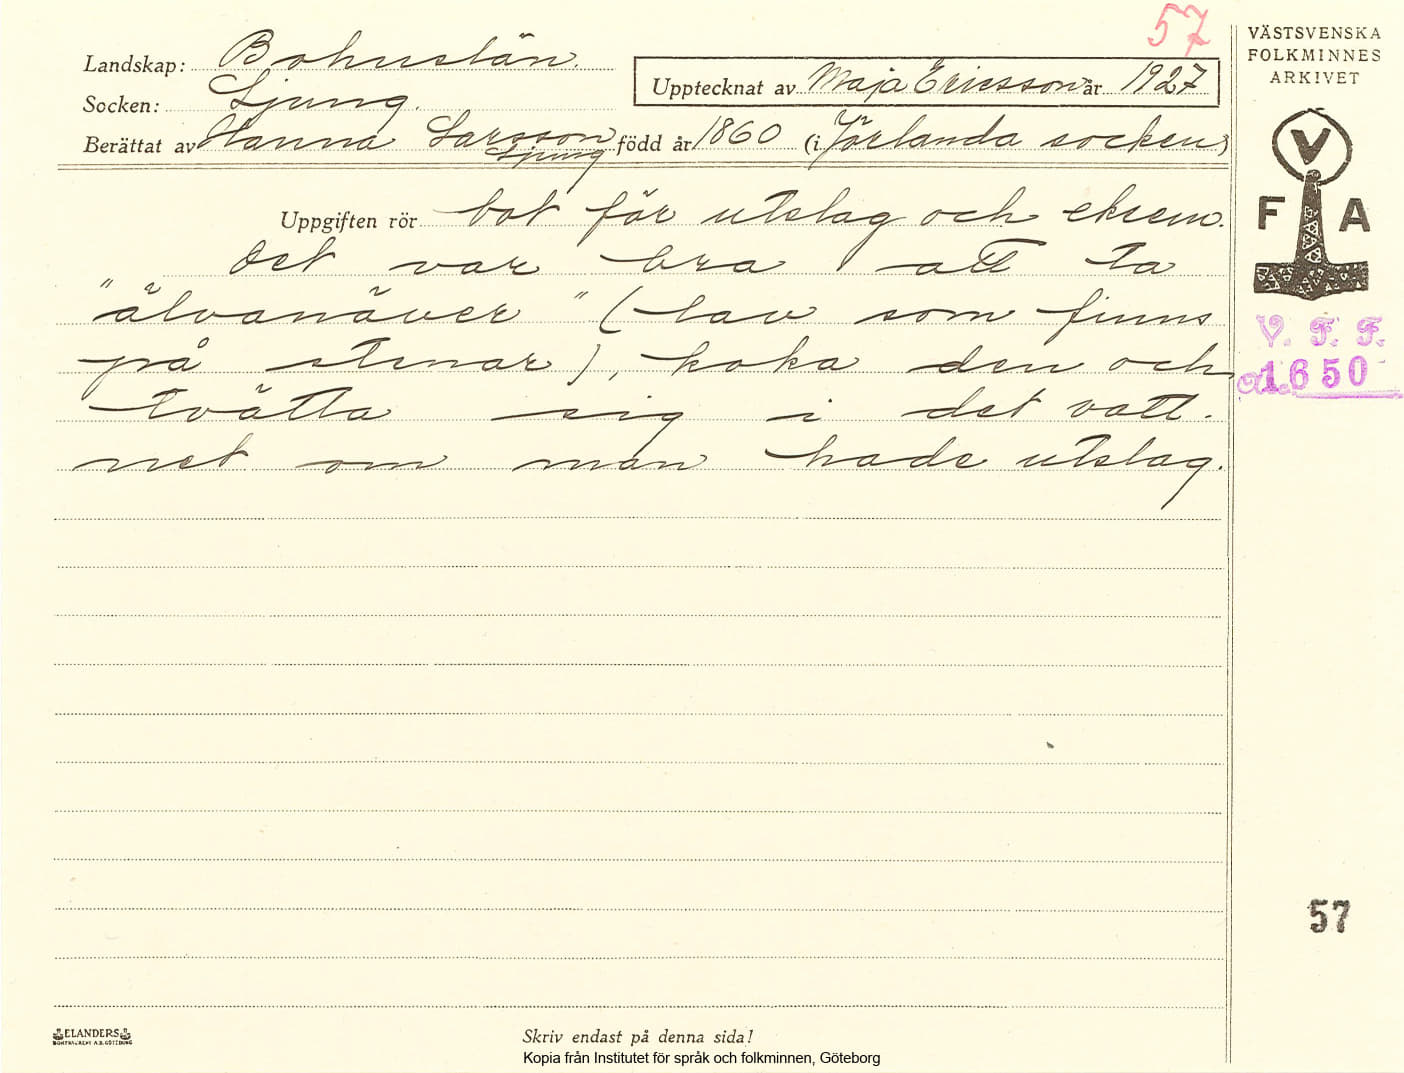 57
Landskap: Bohuslän.
Socken: Ljung.
Berättat av Hanna Larsson född år 1860 (i Jörlanda socken)
Ljung
Upptecknat av Maja Ericsson år 1927
Uppgiften rör bot för utslag och eksem.
Det var bra att ta
"älvanäver" (lav som finns
på stenar), koka den och
tvätta sig i det vatt-
net om man hade utslag.
VÄSTSVENSKA
FOLKMINNES
ARKIVET
V
F A
V. F. F.
1650
57
ELANDERS
Skriv endast på denna sida!
Kopia från Institutet för språk och folkminnen, Göteborg